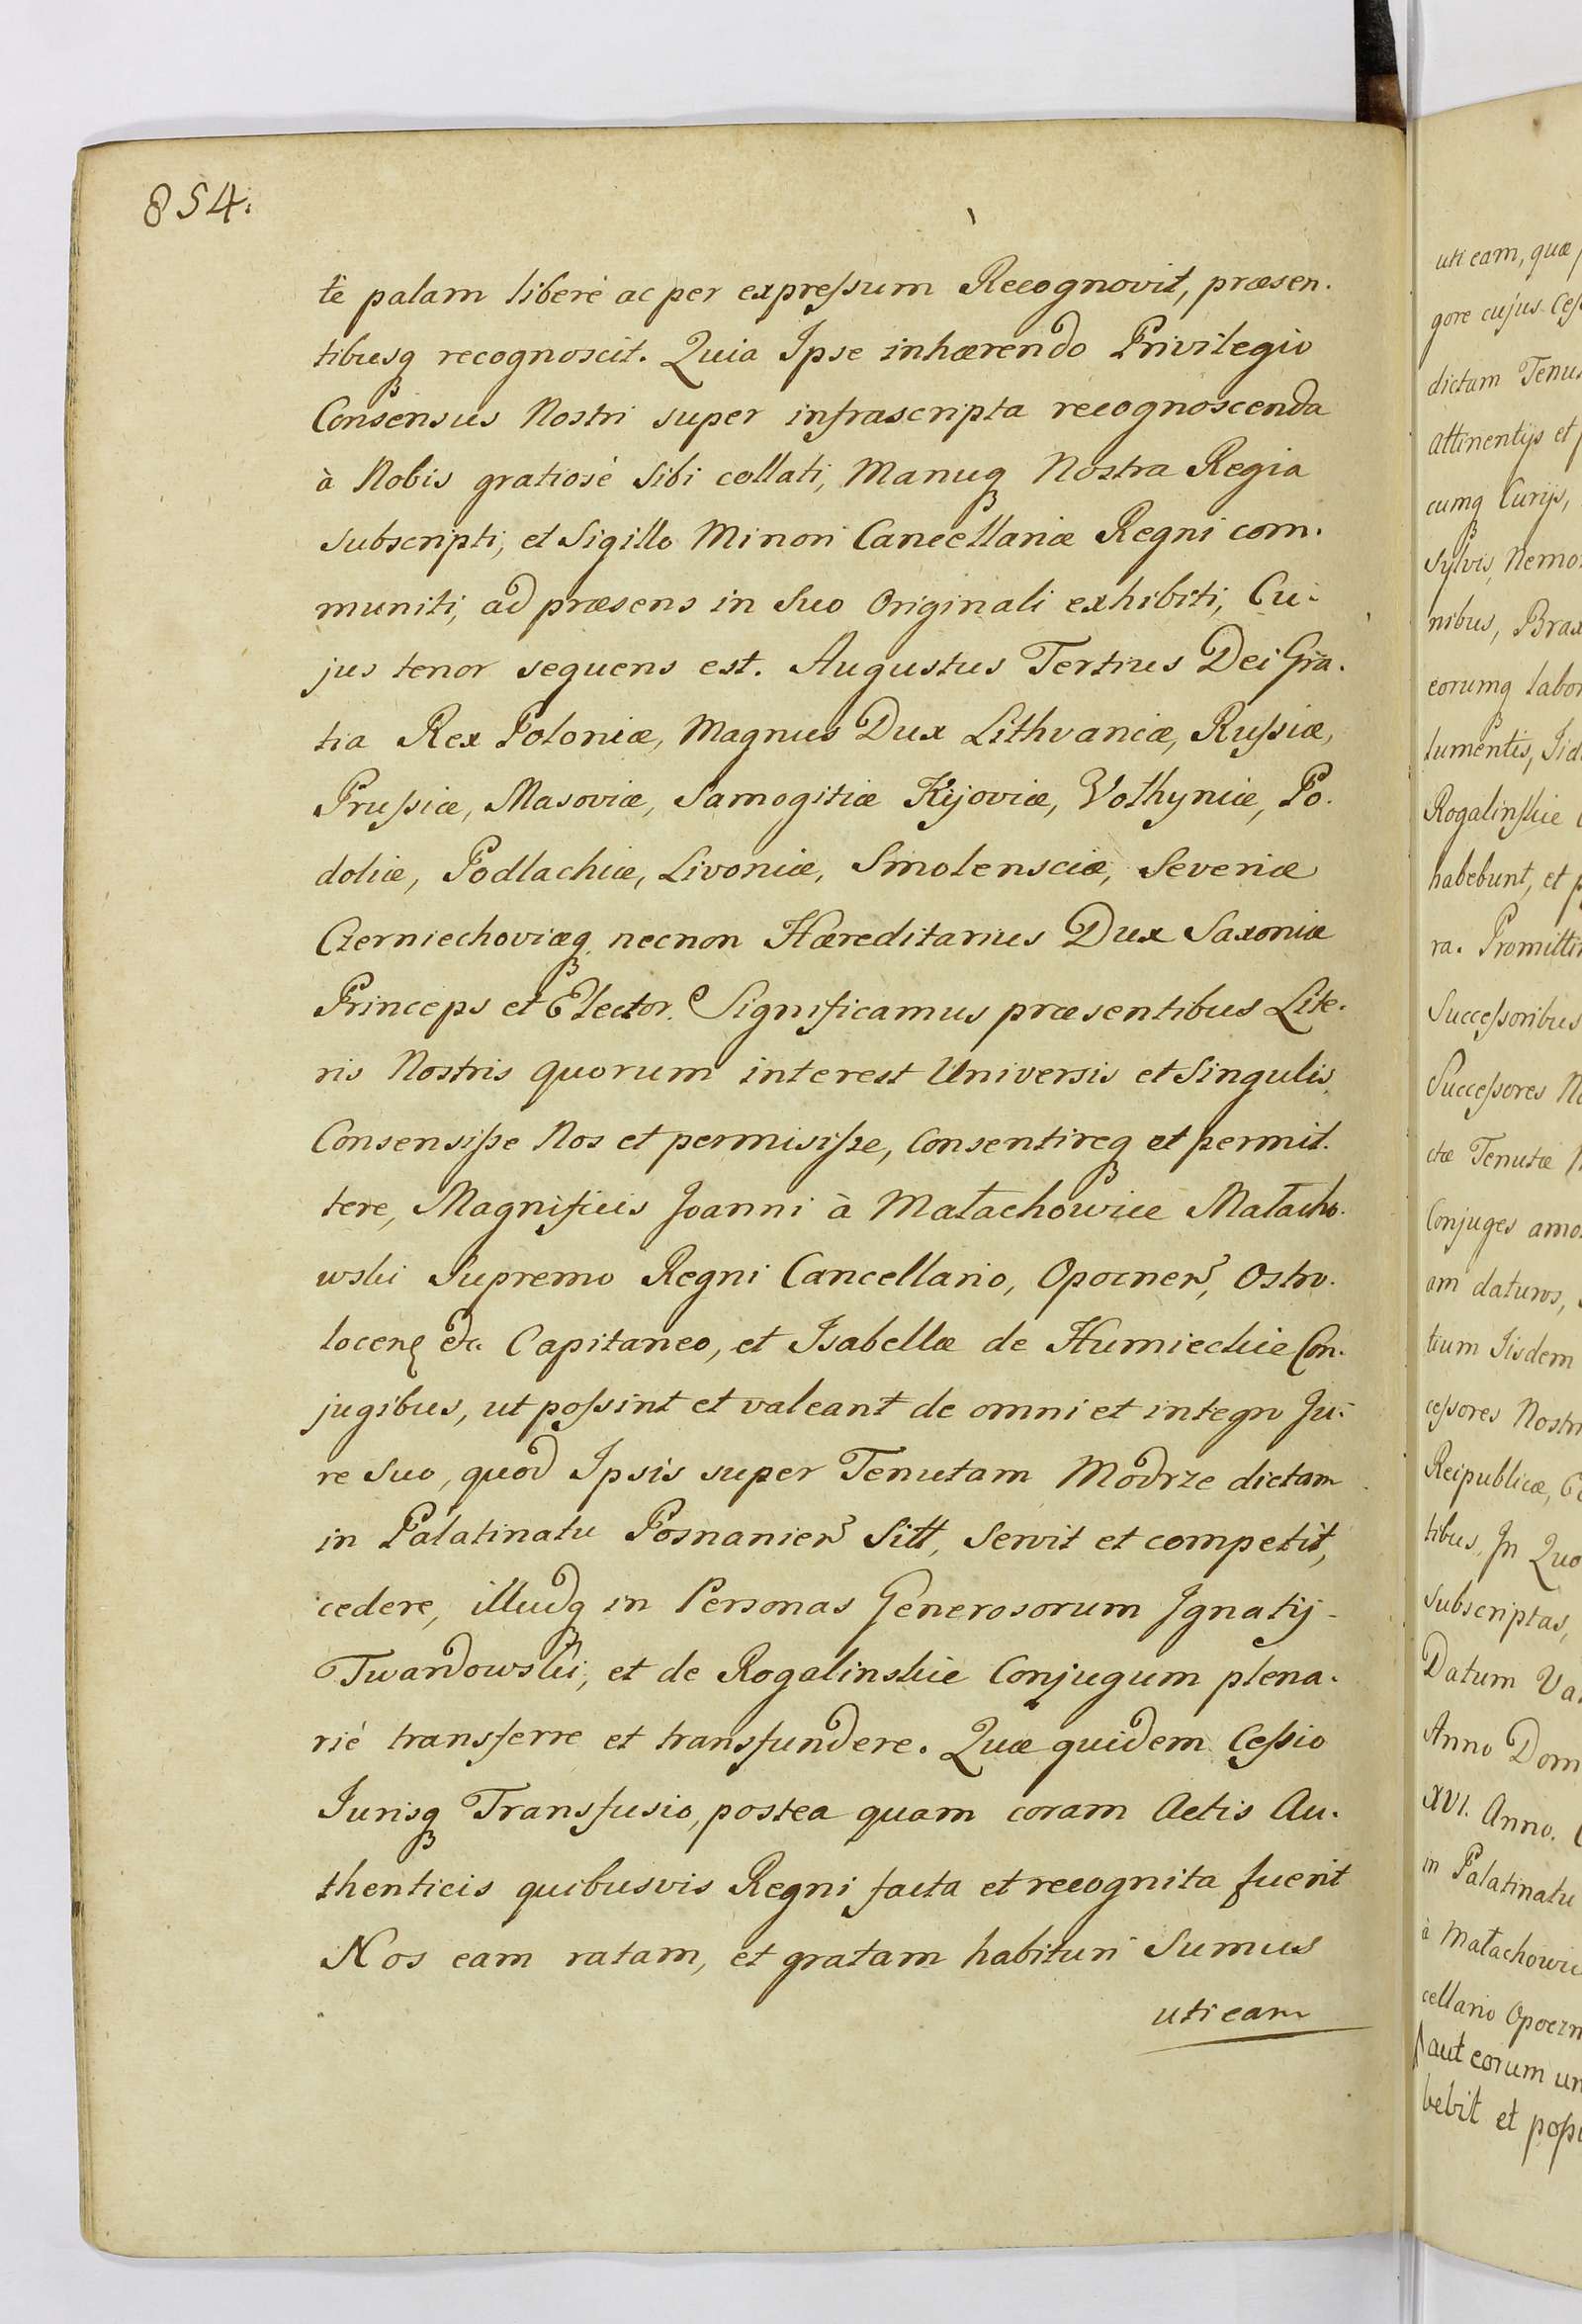 854.
te palam liberè ac per expreſsum Recognovit, præsen.
tibusq recognoscit. Quia Ipse inhærendo Privilegio
Consensus Nostri super infrascripta recognoscenda
à Nobis gratiosè Sibi collati, Manuq Nostra Regia
subscripti, et Sigillo Minori Cancellariæ Regni com.
muniti, ad præsens in Suo Originali exhibiti, Cu.
jus tenor sequens est. Augustus Tertius Dei Gra.
tia Rex Poloniæ, Magnus Dux Lithvaniæ, Ruſsiæ,
Pruſsiæ, Masoviæ, Samogitiæ Kijoviæ, Volhyniæ, Po.
doliæ, Podlachiæ, Livoniæ, Smolensciæ, Severiæ
Czerniechoviæq necnon Hæreditarius Dux Saxoniæ
Princeps et Elector. Significamus præsentibus Lite.
ris Nostris quorum interest Universis et Singulis
Consensiſse Nos et permisiſse, Consentireq et permit.
tere, Magnificis Joanni à Małachowice Małacho.
wski Supremo Regni Cancellario, Opocnen, Ostro.
locen etc. Capitaneo, et Isabellæ de Humieckie Con.
jugibus, ut poſsint et valeant de omni et integro Ju.
re Suo, quod Ipsis super Tenutam Modrze dictam
in Palatinatu Posnanien Sitt, Servit et competit,
cedere, illudq in Personas Generosorum Ignatij
Twardowski, et de Rogalinskie Conjugum plena.
riè transferre et transfundere. Quæ quidem Ceſsio
Jurisq Transfusio, postea quam coram Actis Au.
thenticis quibusvis Regni facta et recognita fuerit
Nos eam ratam, et gratam habituri Sumus
uti eam
uti eam, quæ
gore cujus Ceſ
dictam Tenu
attinentijs et
cumq Curijs,
Sylvis, Nemo
nibus, Brax
eorumq labor
lumentis, Iid
Rogalinskie
habebunt, et p
ra. Promitti
Succeſsoribus
Succeſsores N
ctæ Tenutæ
Conjuges amo
am daturos,
tium Iisdem
ceſsores Nostri
Reipublicæ,
tibus. In Quo
Subscriptas,
Datum Va
Anno Dom
XVI. Anno.
in Palatinatu
à Małachowi
cellario Opoczn
aut eorum un
bebit et poſs